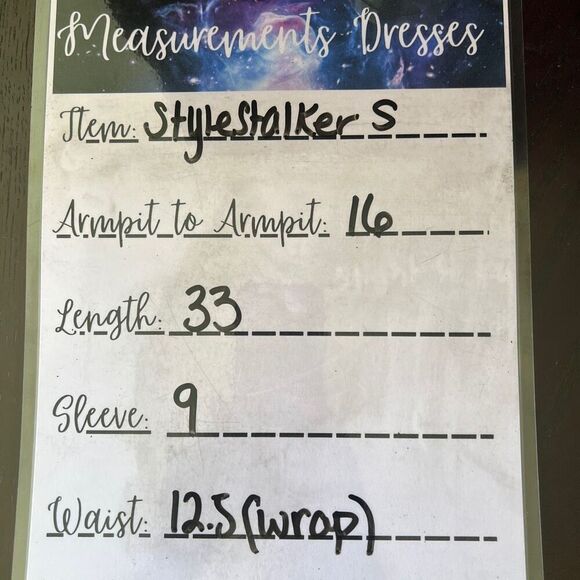 Measurements Dresses
Item: Stylestalker S
Armpit to Armpit: 16
Length: 33
Sleeve: 9
Waist: 12.5 (wrap)